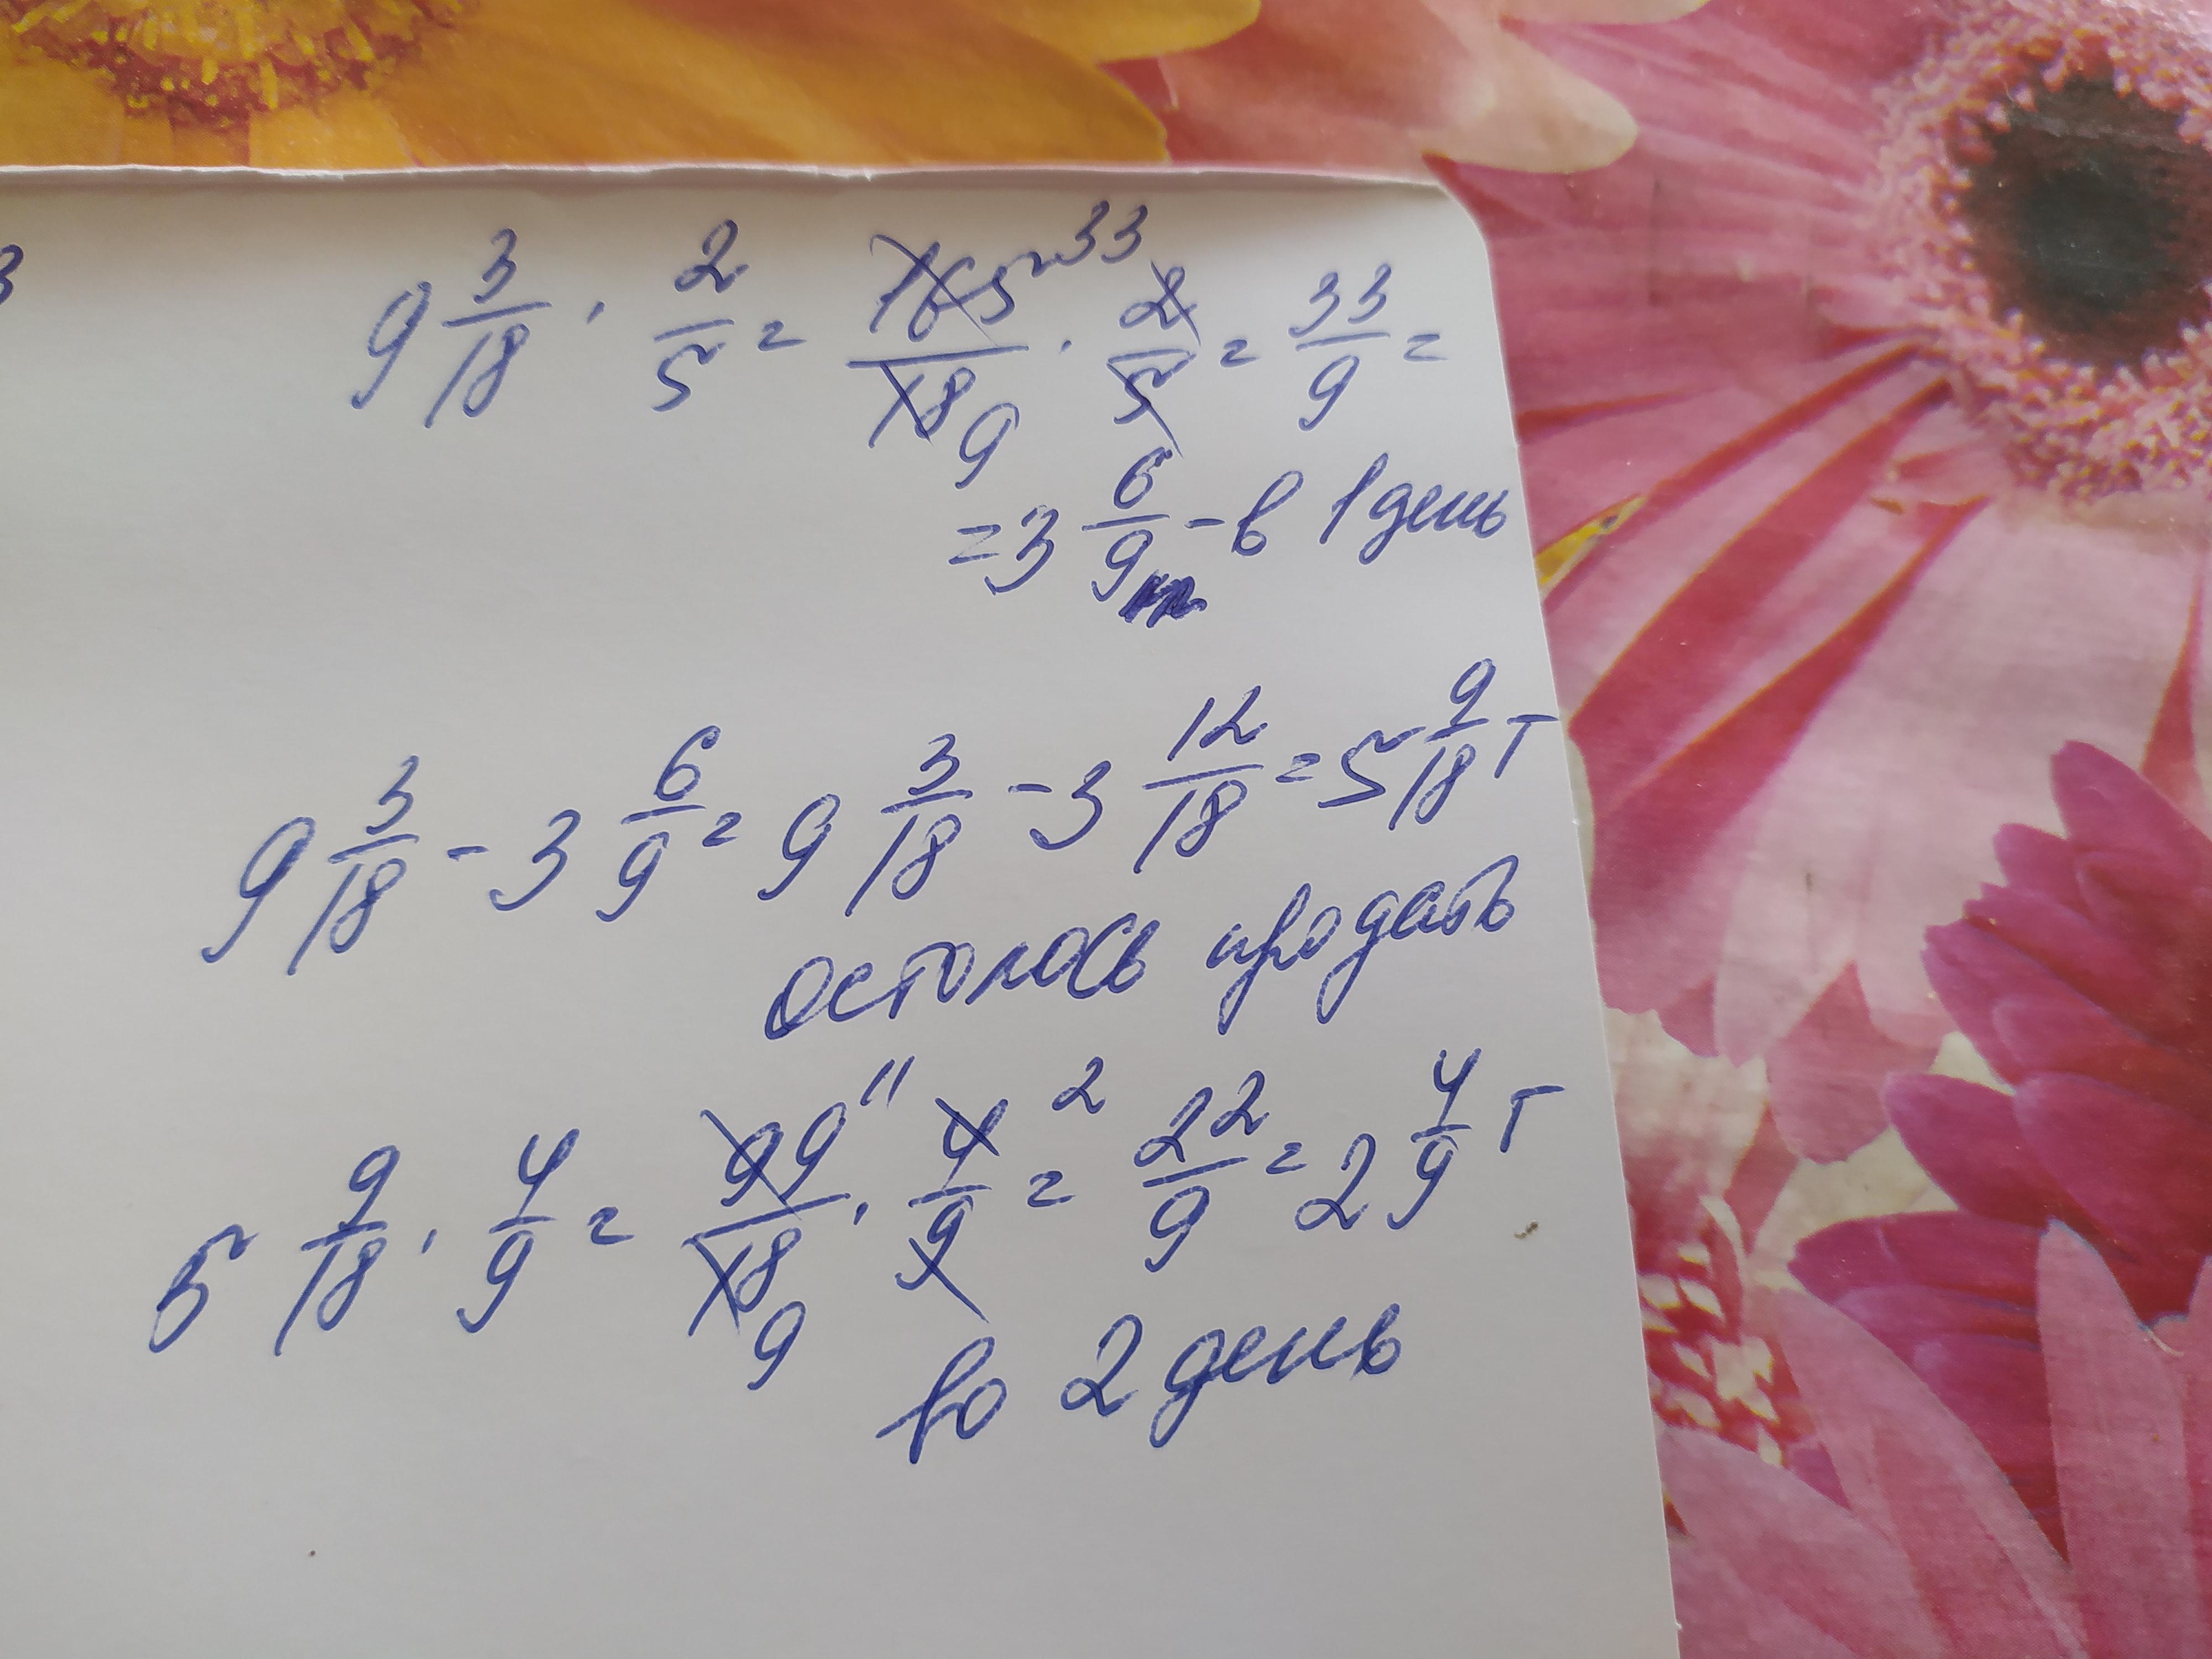 3
9 3/18 · 2/5 = 165 33/18 9 · 2/5 = 33/9 =
= 3 6/9 т - в 1 день
9 3/18 - 3 6/9 = 9 3/18 - 3 12/18 = 5 9/18 т
осталось продать
5 9/18 · 4/9 = 99 11/18 9 · 4 2/9 = 22/9 = 2 4/9 т
во 2 день